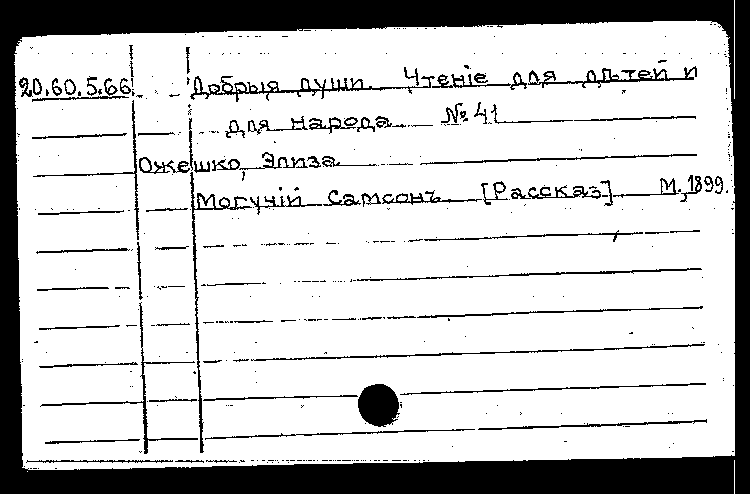 20.60.5.66 Добрыя души. Чтеніе для дѣтей и
для народа. № 41
Ожешко, Элиза.
Могучій Самсонъ. [Рассказ]. М., 1899.